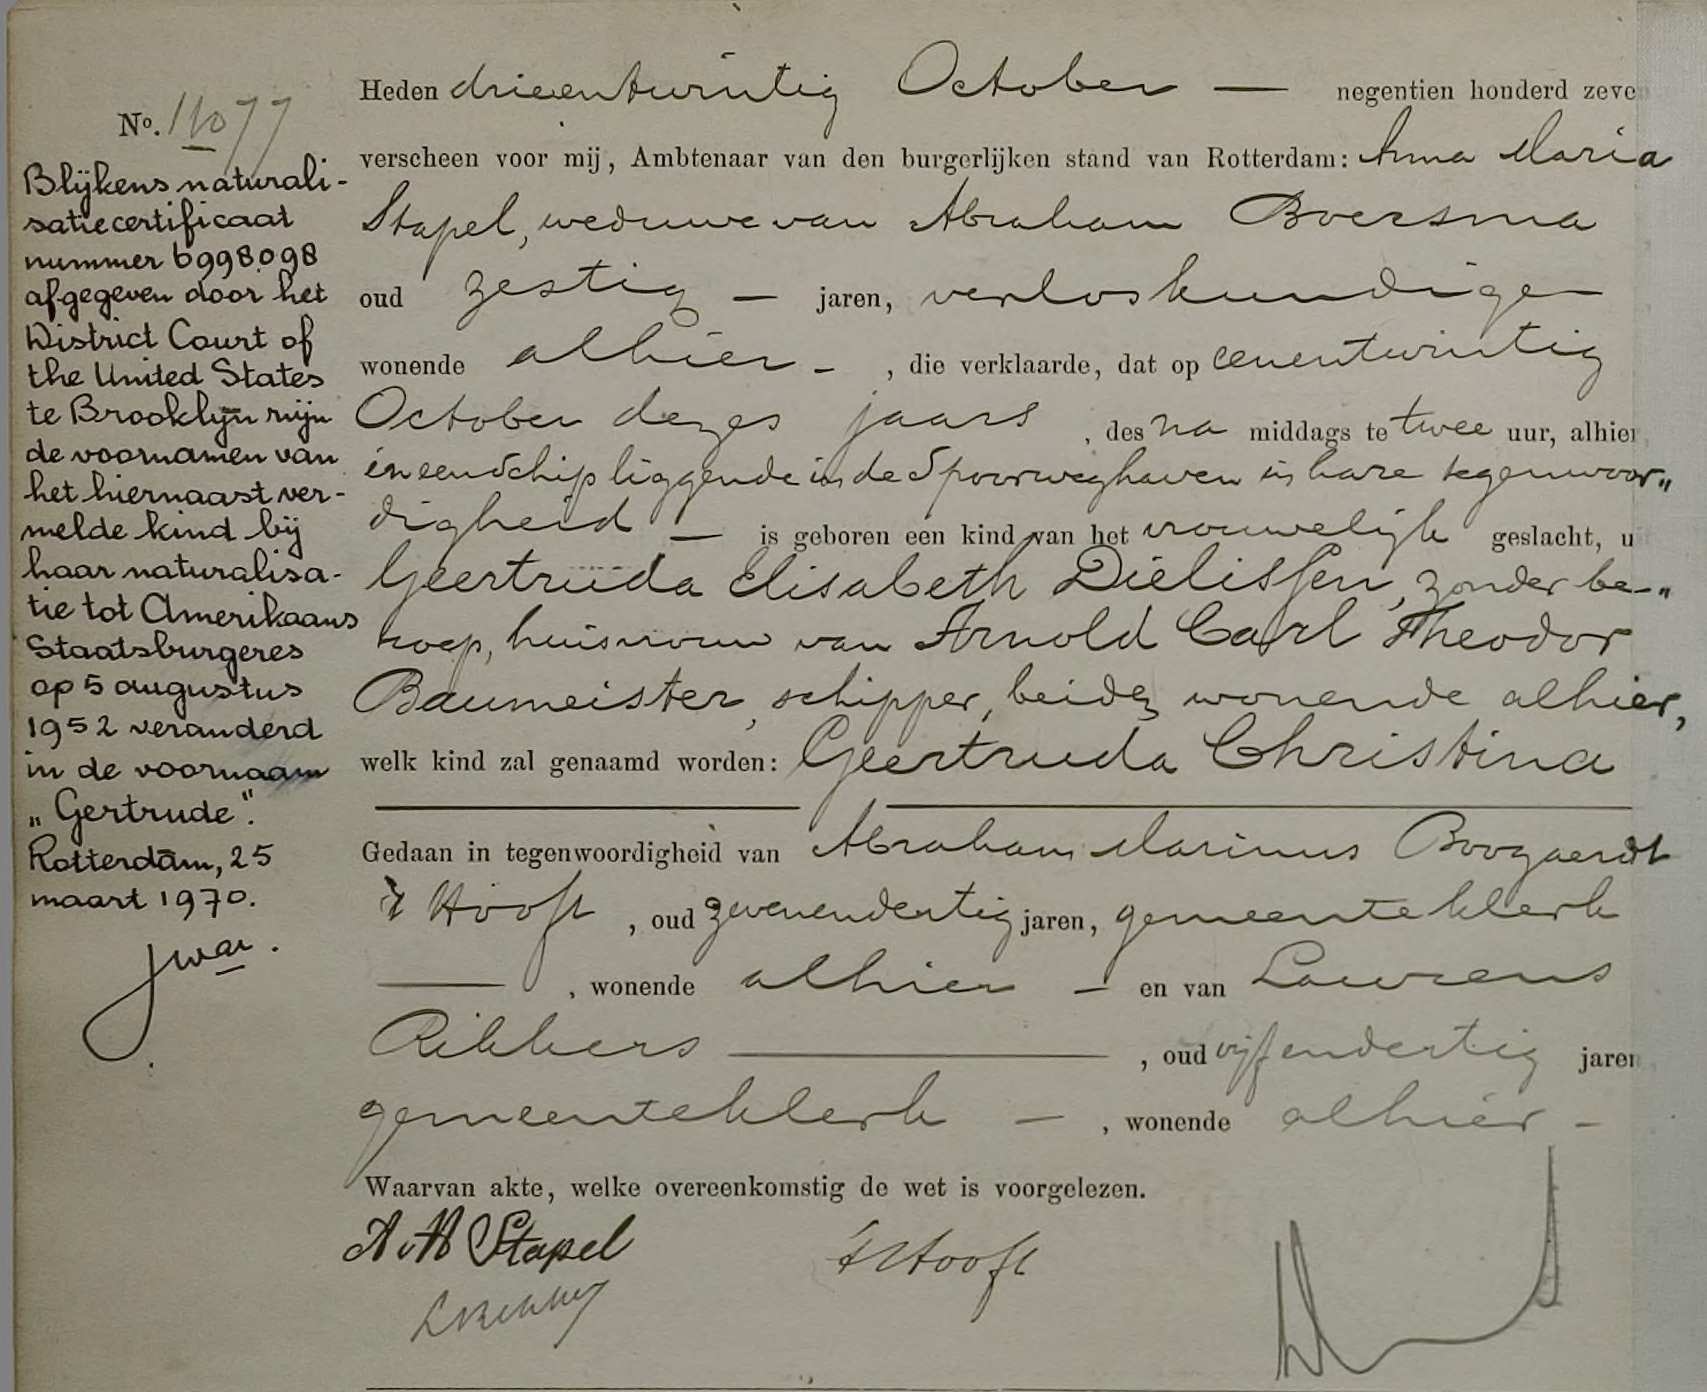 No. 11077
Blijkens naturali-
satiecertificaat
nummer 6998098
afgegeven door het
District Court of
the United States
te Brooklyn zijn
de voornamen van
het hiernaast ver-
melde kind bij
haar naturalisa-
tie tot Amerikaans
Staatsburgeres
op 5 augustus
1952 veranderd
in de voornaam
„Gertrude".
Rotterdam, 25
maart 1970.
Heden drieentwintig October — negentien honderd zeven
verscheen voor mij, Ambtenaar van den burgerlijken stand van Rotterdam: Anna Maria
Stapel, weduwe van Abraham Boersma
oud zestig — jaren, verloskundige —
wonende alhier —, die verklaarde, dat op eenentwintig
October dezes jaars, des na middags te twee uur, alhier
in een schip liggende in de Spoorweghaven in hare tegenwoor„
digheid — is geboren een kind van het vrouwelijk geslacht, u
Geertruida Elisabeth Dielissen, zonder be-„
roep, huisvrouw van Arnold Carl Theodor
Baumeister, schipper, beiden wonende alhier,
welk kind zal genaamd worden: Geertruda Christina
Gedaan in tegenwoordigheid van Abraham Marinus Boogaerdt
't Hooft, oud zevenendertig jaren, gemeenteklerk
—, wonende alhier — en van Lourens
Rikkers —, oud vijfendertig jaren
gemeenteklerk —, wonende alhier —
Waarvan akte, welke overeenkomstig de wet is voorgelezen.
A M Stapel
't Hooft